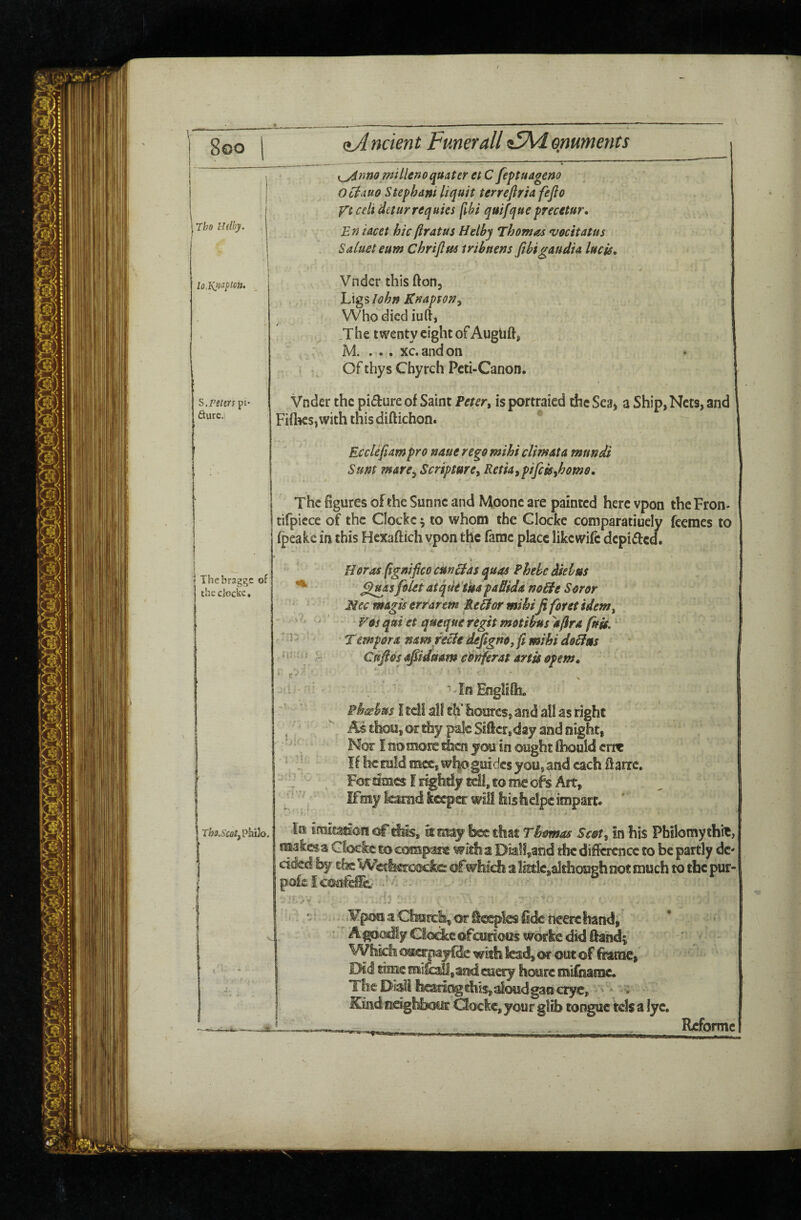 800
Ancient Funerall Monuments
Anno milleno quater et C septuageno
Octauo Stephani liquit terrestria festo
Vt celi detur requies sibi quisque precetur.
Tho Helby.
En iacet hic stratus Helby Thomas vocitatus
Saluet eum Christus tribuens sibi gaudia lucis.
Io.Knapton.
Vnder this ston,
Ligs Iohn Knapton,
Who died iust,
The twenty eight of August,
M. . . . xc. and on
Of thys Chyrch Peti-Canon.
S.Peters pi-
cture.
Vnder the picture of Saint Peter, is portraied the Sea, a Ship, Nets, and
Fishes, with this distichon.
Ecclesiam pro naue rego mihi climata mundi
Sunt mare, Scripture, Retia, piscis, homo.
The figures of the Sunne and Moone are painted here vpon the Fron-
tispiece of the Clocke; to whom the Clocke comparatiuely seemes to
speake in this Hexastich vpon the same place likewise depicted.
The bragge of
the clocke.
Horas significo cunctas quas Phebe diebus
Quas solet atque tua pallida nocte Soror
Nec magis errarem Rector mihi si foret idem,
Vos qui et queque regit motibus astra suis.
Tempora nam recte designo, si mihi doctus
Custos assiduam conferat artis opem.
In English.
Phœbus I tell all th' houres, and all as right
As thou, or thy pale Sister, day and night,
Nor I no more then you in ought should erre
If he ruld mee, who guides you, and each starre.
For times I rightly tell, to me ofs Art,
If my learnd keeper will his helpe impart.
Tho.Scot, Philo.
In imitation of this, it may bee that Thomas Scot, in his Philomythie,
makes a Clocke to compare with a Diall, and the difference to be partly de-
cided by the Wethercocke: of which a little, although not much to the pur-
pose I confesse.
Vpon a Church, or steeples side neere hand,
A goodly Clocke of curious worke did stand;
Which ouerpayside with lead, or out of frame,
Did time miscall, and euery houre misname.
The Diall hearing this, aloud gan crye,
Kind neighbour Clocke, your glib tongue tels a lye.
Reforme